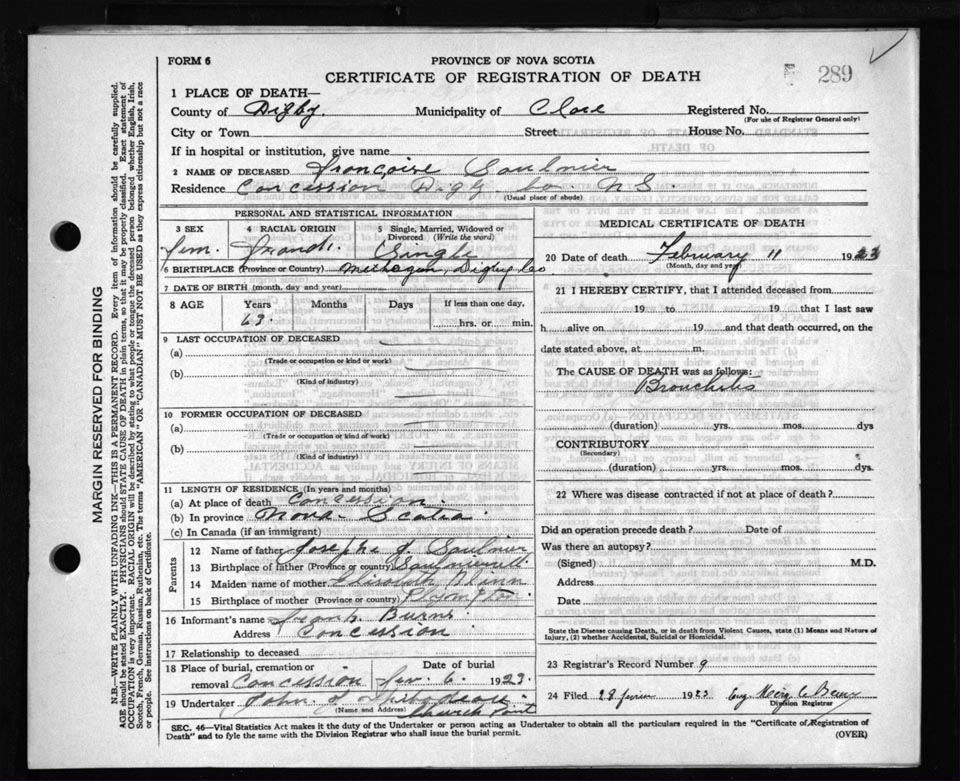 FORM 6
PROVINCE OF NOVA SCOTIA
CERTIFICATE OF REGISTRATION OF DEATH
289
1 PLACE OF DEATH—
County of Digby. Municipality of Clare Registered No.
(For use of Registrar General only)
City or Town Street House No.
If in hospital or institution, give name
2 NAME OF DECEASED Françoise Saulnier
Residence Concession Digby Co. N.S.
(Usual place of abode)
PERSONAL AND STATISTICAL INFORMATION
3 SEX
Fem.
4 RACIAL ORIGIN
French.
5 Single, Married, Widowed or Divorced (Write the word)
Single
6 BIRTHPLACE (Province or Country) Meteghan, Digby Co
7 DATE OF BIRTH (month, day and year)
8 AGE Years Months Days If less than one day,
hrs. or min.
9 LAST OCCUPATION OF DECEASED
(a)
(Trade or occupation or kind or work)
(b)
(Kind of industry)
10 FORMER OCCUPATION OF DECEASED
(a)
(Trade or occupation or kind or work)
(b)
(Kind of industry)
11 LENGTH OF RESIDENCE (In years and months)
(a) At place of death Concession.
(b) In province Nova-Scotia
(c) In Canada (if an immigrant)
Parents
12 Name of father Joseph J. Saulnier
13 Birthplace of father (Province or country)
14 Maiden name of mother Elisabeth Blinn
15 Birthplace of mother (Province or country) Plympton
16 Informant's name Frank Burns
Address Concession
17 Relationship to deceased
18 Place of burial, cremation or removal Concession
Date of burial 1923.
19 Undertaker John Thibodeau
(Name and Address) Church Point
MEDICAL CERTIFICATE OF DEATH
20 Date of death February 11 1923
(Month, day and year)
21 I HEREBY CERTIFY, that I attended deceased from
19 to 19 that I last saw
h alive on 19 and that death occurred, on the
date stated above, at m.
The CAUSE OF DEATH was as follows:
Bronchitis
(duration) yrs. mos. dys
CONTRIBUTORY
(Secondary)
(duration) yrs. mos. dys.
22 Where was disease contracted if not at place of death?
Did an operation precede death? Date of
Was there an autopsy?
(Signed) M.D.
Address
Date
State the Disease causing Death, or in death from Violent Causes, state (1) Means and Nature of
Injury, (2) whether Accidental, Suicidal or Homicidal.
23 Registrar's Record Number 9
24 Filed 28 1923
Division Registrar
SEC. 46—Vital Statistics Act makes it the duty of the Undertaker or person acting as Undertaker to obtain all the particulars required in the "Certificate of Registration of
Death" and to fyle the same with the Division Registrar who shall issue the burial permit.
(OVER)
MARGIN RESERVED FOR BINDING
N.B.—WRITE PLAINLY WITH UNFADING INK—THIS IS A PERMANENT RECORD. Every item of information should be carefully supplied.
AGE should be stated EXACTLY. PHYSICIANS should STATE CAUSE OF DEATH in plain terms, so that it may be properly classified. Exact statement of
OCCUPATION is very important. RACIAL ORIGIN will be described by stating to what people or tongue the deceased person belonged whether English, Irish,
Scotch, French, German, Russian, Ruthenian, etc. The terms "AMERICAN" OR "CANADIAN" MUST NOT BE USED as they express citizenship but not a race
or people. See instructions on back of Certificate.